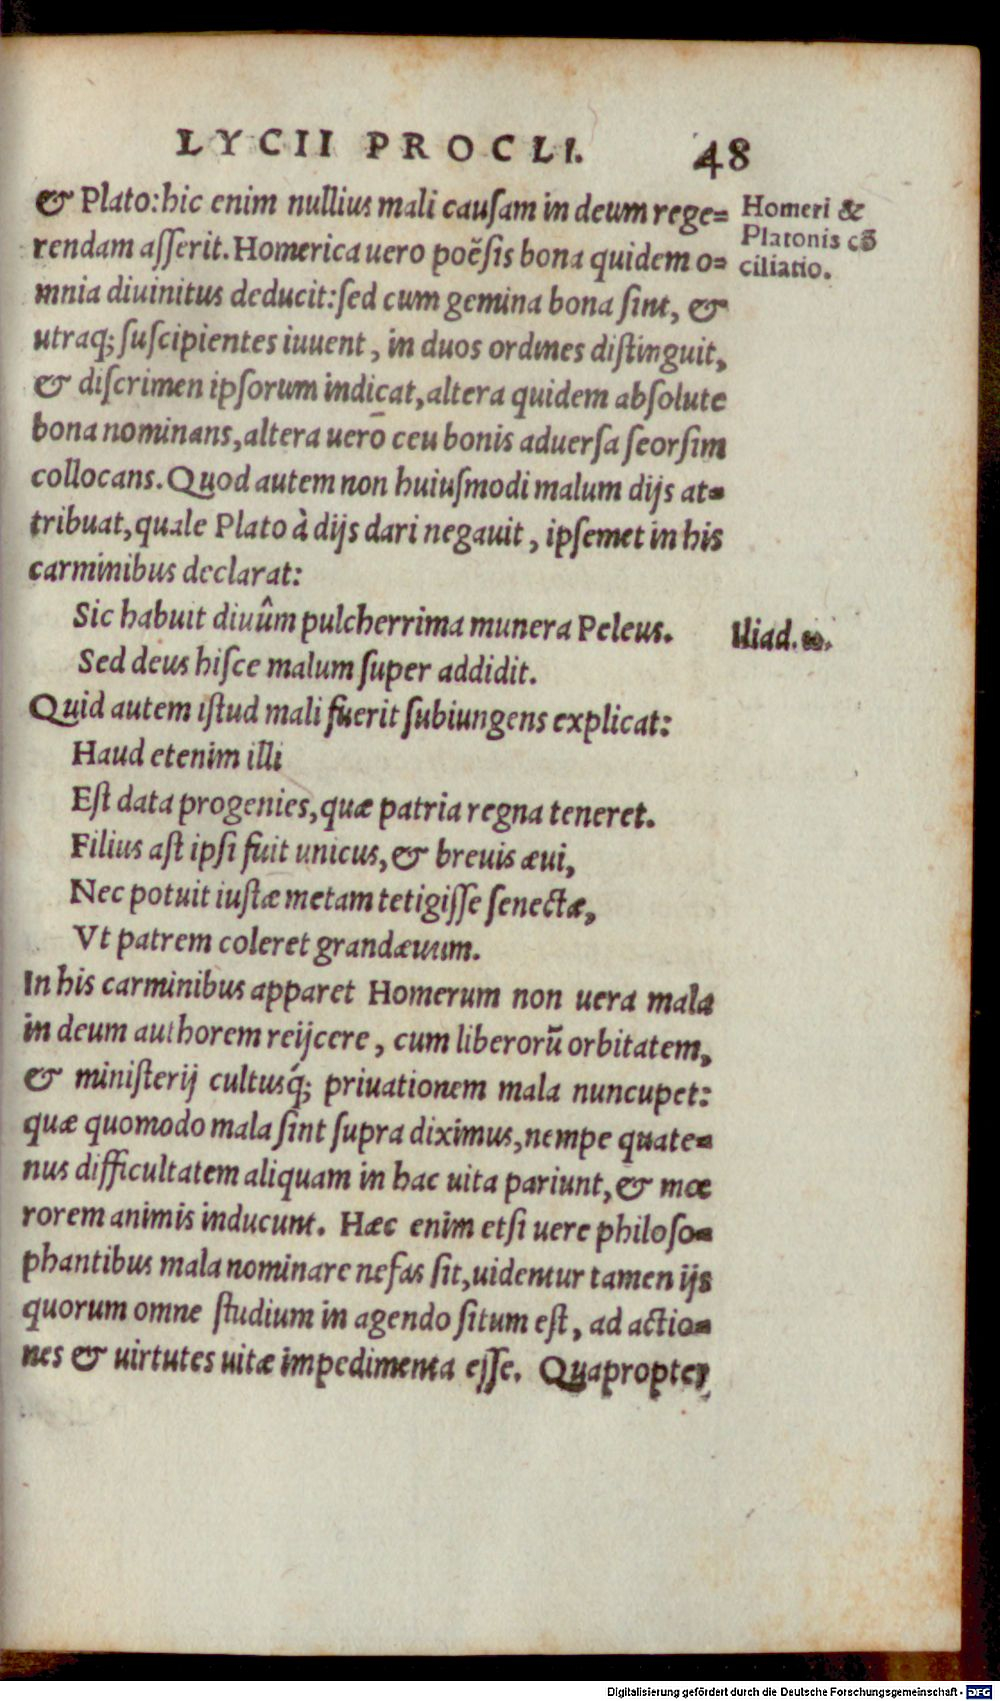 LYCII PROCLI. 48
& Plato: hic enim nullius mali cauſam in deum rege=
rendam aſſerit. Homerica uero poẽſis bona quidem o=
mnia diuinitus deducit: ſed cum gemina bona ſint, &
utraq; ſuſcipientes iuuent, in duos ordines diſtinguit,
& diſcrimen ipſorum indicat, altera quidem abſolute
bona nominans, altera uerō ceu bonis aduerſa ſeorſim
collocans. Quod autem non huiuſmodi malum dijs at=
tribuat, quale Plato à dijs dari negauit, ipſemet in his
carminibus declarat:
Sic habuit diuûm pulcherrima munera Peleus.
Sed deus hiſce malum ſuper addidit.
Quid autem iſtud mali fuerit ſubiungens explicat:
Haud etenim illi
Eſt data progenies, quæ patria regna teneret.
Filius aſt ipſi fuit unicus, & breuis æui,
Nec potuit iuſtæ metam tetigiſſe ſenectæ,
Vt patrem coleret grandæuum.
In his carminibus apparet Homerum non uera mala
in deum authorem reijcere, cum liberorū orbitatem,
& miniſterij cultusq́; priuationem mala nuncupet:
quæ quomodo mala ſint ſupra diximus, nempe quate=
nus difficultatem aliquam in hac uita pariunt, & mœ
rorem animis inducunt. Hæc enim etſi uere philoſo=
phantibus mala nominare nefas ſit, uidentur tamen ijs
quorum omne ſtudium in agendo ſitum eſt, ad actio=
nes & uirtutes uitæ impedimenta eſſe. Quapropter
Homeri &
Platonis cō
ciliatio.
Iliad. ω.
Digitalisierung gefördert durch die Deutsche Forschungsgemeinschaft - DFG